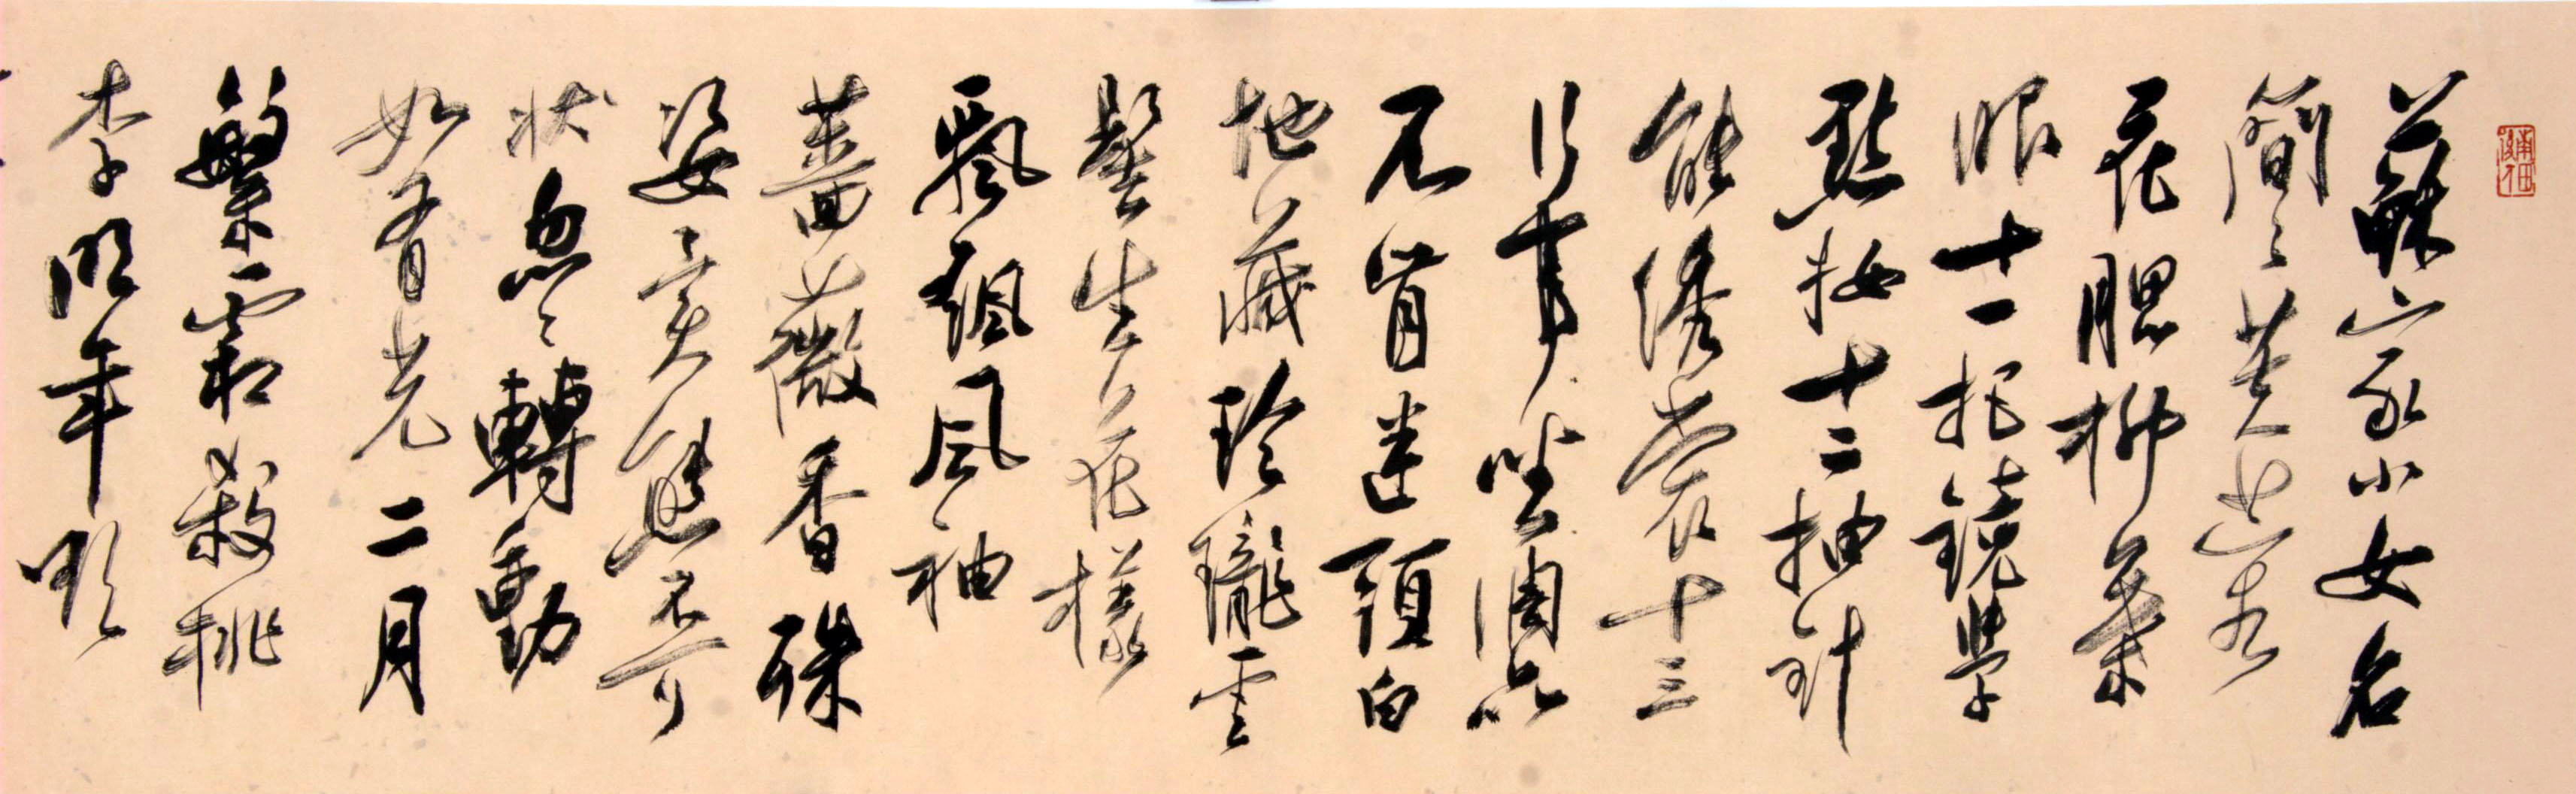 蘇家小女名
簡々芙蓉
花腮柳葉
眼十一把鏡學
點妝十二抽針
能繡裳十三
行事坐調品
不肯迷頭白
地藏玲瓏雲
髻生花樣
飄颻風袖
薔薇香殊
姿異態不可
狀忽々轉動
如有光二月
繁霜殺桃
李明年欲